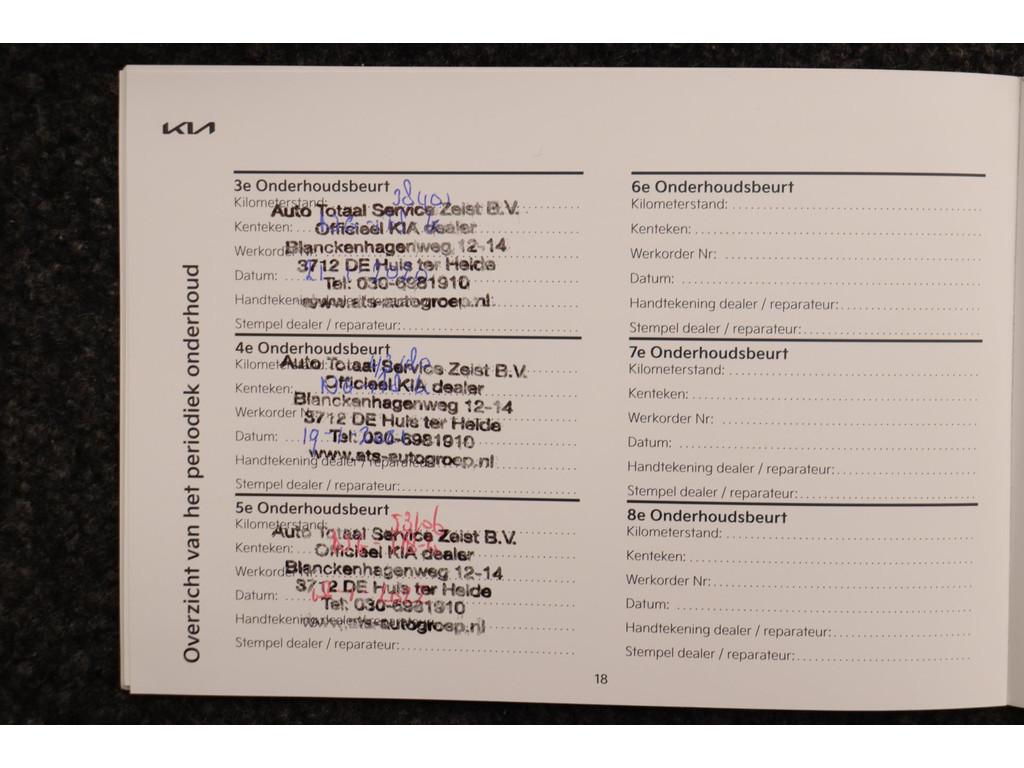 KIA
Overzicht van het periodiek onderhoud
3e Onderhoudsbeurt
Kilometerstand:
Auto Totaal Service Zeist B.V.
Kenteken:
Officieel KIA dealer
Werkorder Nr:
Blanckenhagenweg 12-14
3712 DE Huis ter Heide
Datum:
Tel: 030-6981910
Handtekening dealer / reparateur:
www.ats-autogroep.nl
Stempel dealer / reparateur:
4e Onderhoudsbeurt
Kilometerstand:
Auto Totaal Service Zeist B.V.
Kenteken:
Officieel KIA dealer
Blanckenhagenweg 12-14
Werkorder Nr:
3712 DE Huis ter Heide
Datum:
Tel: 030-6981910
Handtekening dealer / reparateur:
www.ats-autogroep.nl
Stempel dealer / reparateur:
5e Onderhoudsbeurt
Kilometerstand: 53106
Auto Totaal Service Zeist B.V.
Kenteken:
Officieel KIA dealer
Werkorder Nr:
Blanckenhagenweg 12-14
3712 DE Huis ter Heide
Datum:
Tel: 030-6981910
Handtekening dealer / reparateur:
www.ats-autogroep.nl
Stempel dealer / reparateur:
6e Onderhoudsbeurt
Kilometerstand:
Kenteken:
Werkorder Nr:
Datum:
Handtekening dealer / reparateur:
Stempel dealer / reparateur:
7e Onderhoudsbeurt
Kilometerstand:
Kenteken:
Werkorder Nr:
Datum:
Handtekening dealer / reparateur:
Stempel dealer / reparateur:
8e Onderhoudsbeurt
Kilometerstand:
Kenteken:
Werkorder Nr:
Datum:
Handtekening dealer / reparateur:
Stempel dealer / reparateur:
18